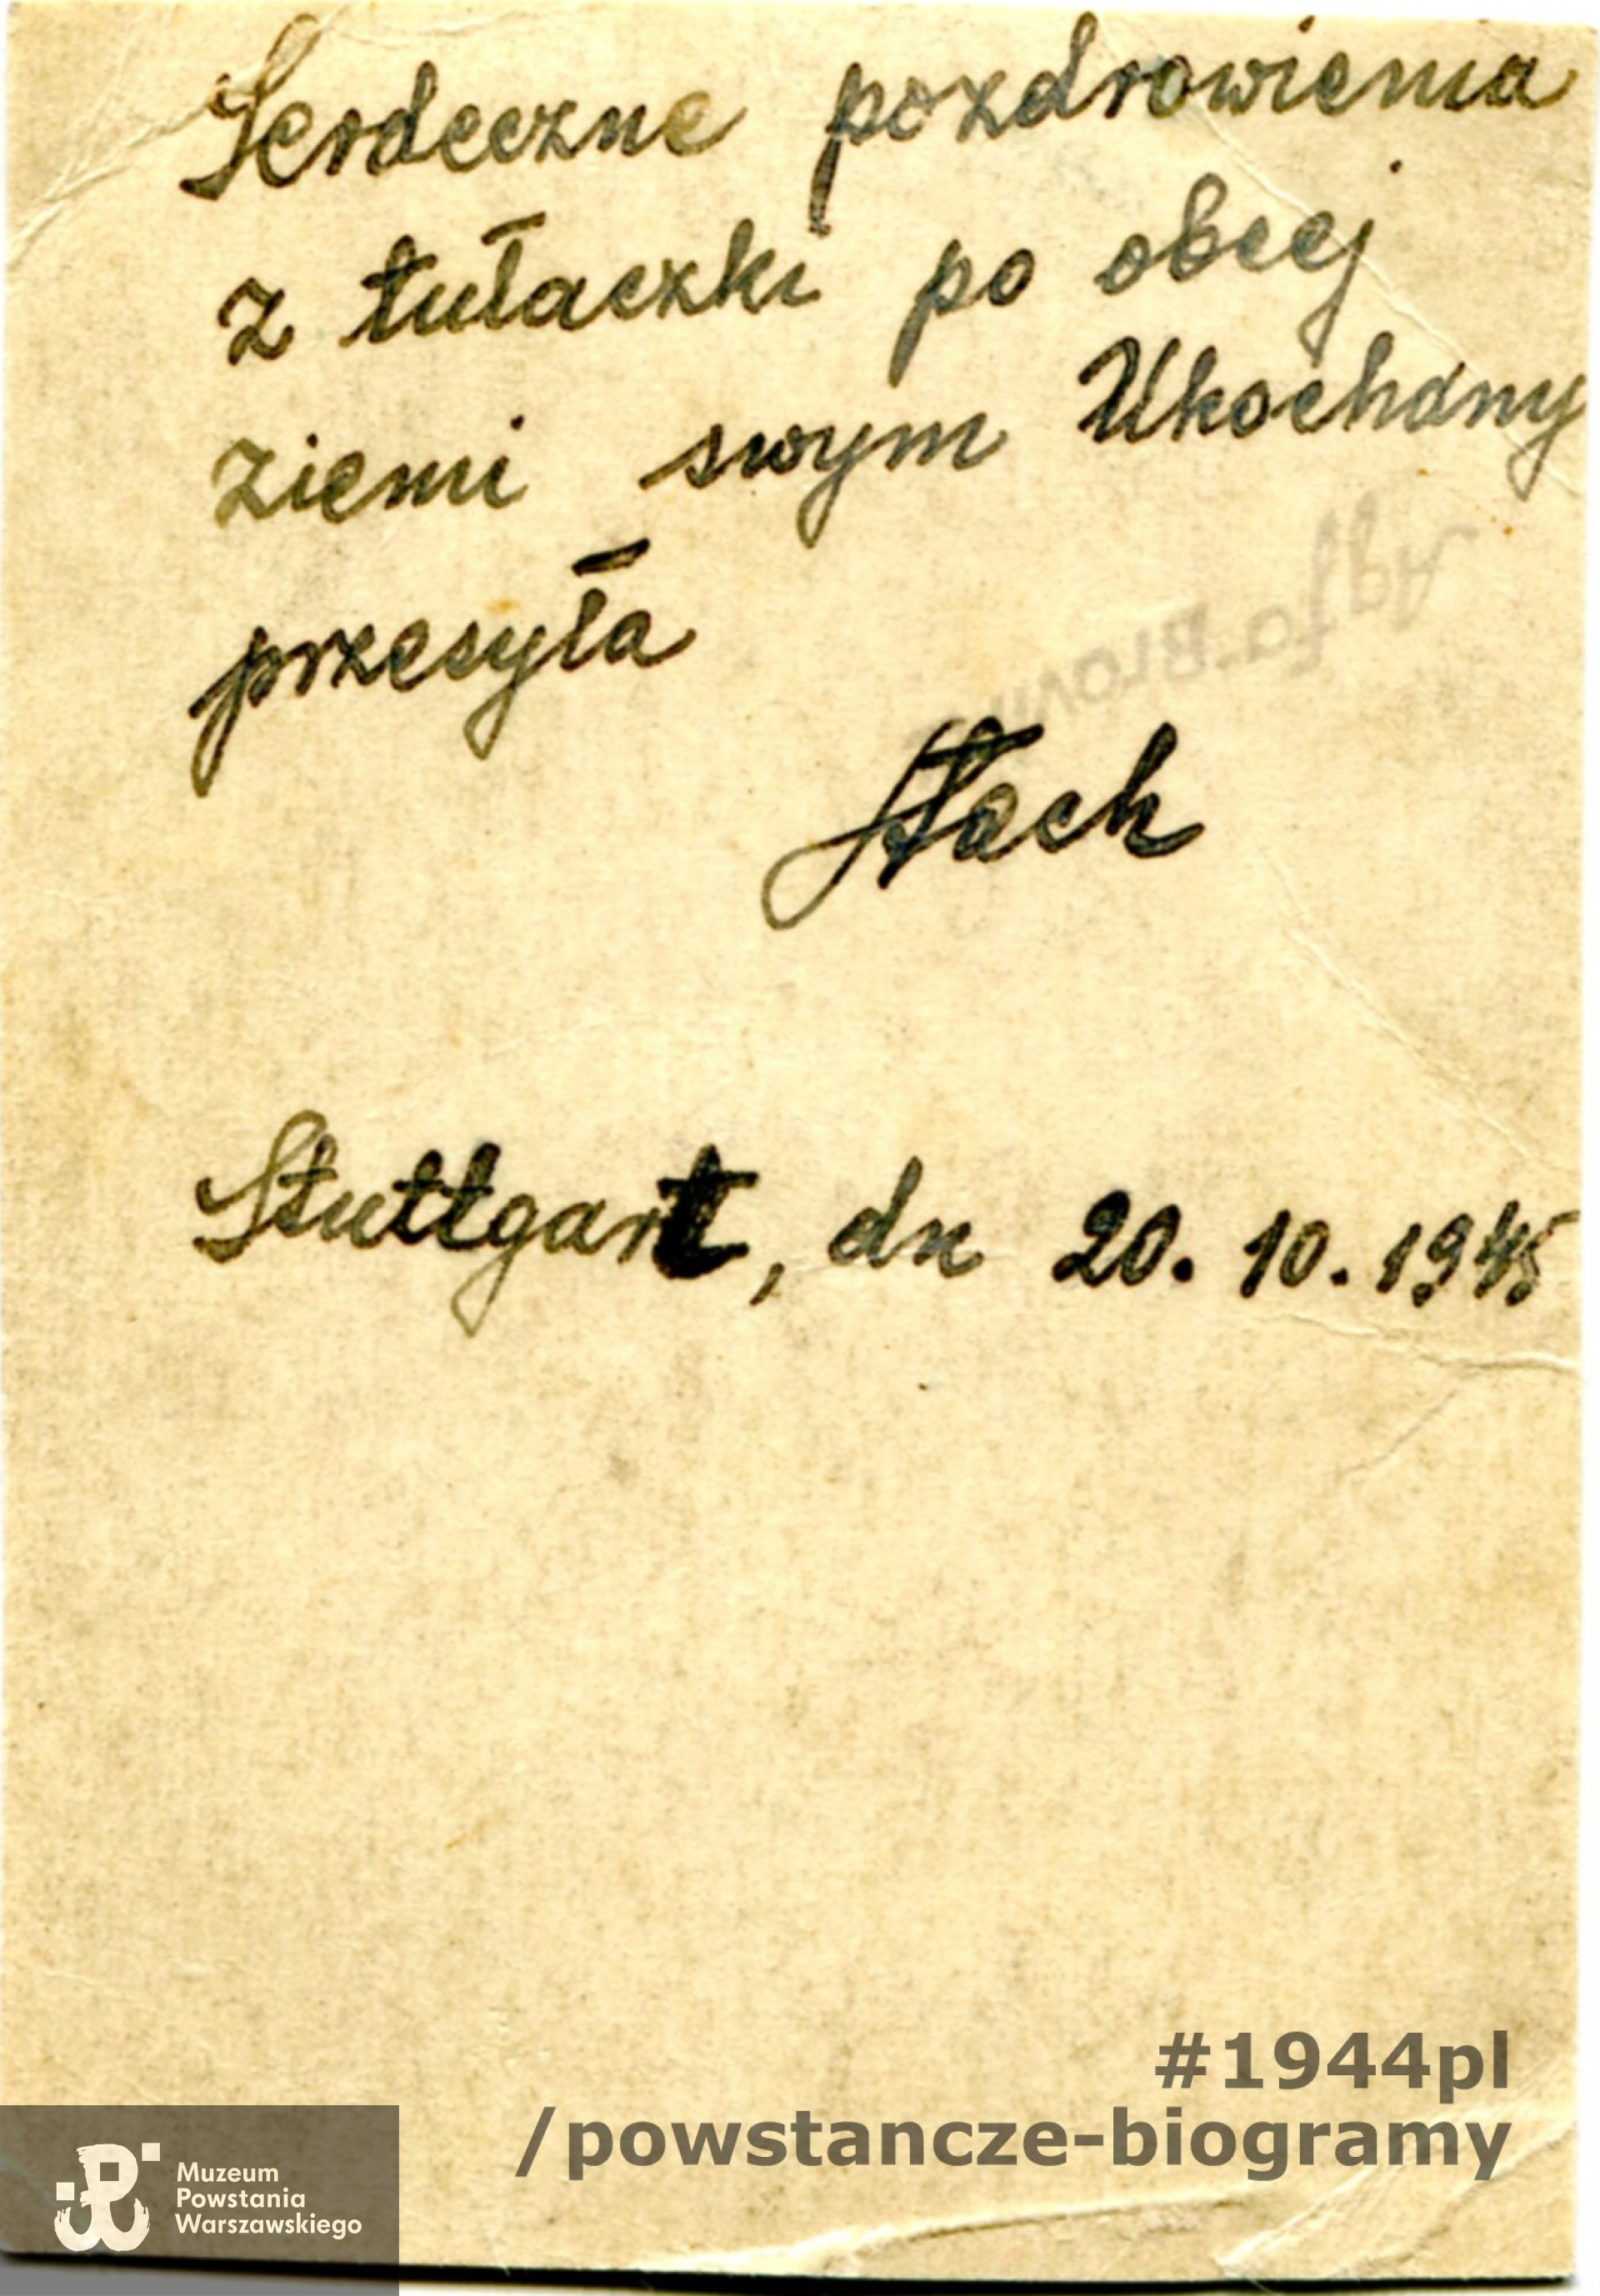 Serdeczne pozdrowienia
z tułaczki po obcej
ziemi swym Ukochany
przesyła
Agfa-Brovi
Stach
Stuttgart, dn 20.10.1945
#1944pl
/powstancze-biogramy
Muzeum
Powstania
Warszawskiego